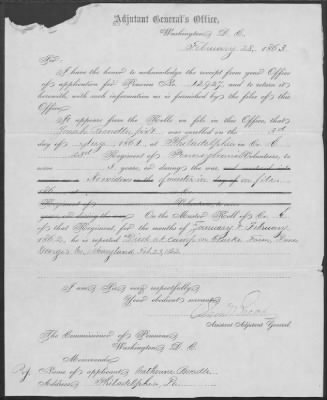 Adjutant General's Office,
Washington D. C.
February 28, 1863
Sir:
I have the honor to acknowledge the receipt from your Office
of application for Pension No. 12,927, and to return it
herewith, with such information as is furnished by the files of this
Office.
It appears from the Rolls on file in this Office, that
Joseph was enrolled on the 3rd
day of Aug 1861, at Philadelphia in Co. C
Regiment of Pennsylvania Volunteers, to
serve 3 years, or during the war, and
No evidence of muster in on file
186
Regiment of
On the Muster Roll of Co. C
of that Regiment for the months of January & February
1862, he is reported Died at camp in Prince
George's Co. Maryland Feb. 23, 1862
I am, Sir, very respectfully,
Your obedient servant,
Assistant Adjutant General.
The Commissioner of Pensions
Washington D. C.
Memoranda
Name of applicant, Catherine
Address, Philadelphia, Pa.